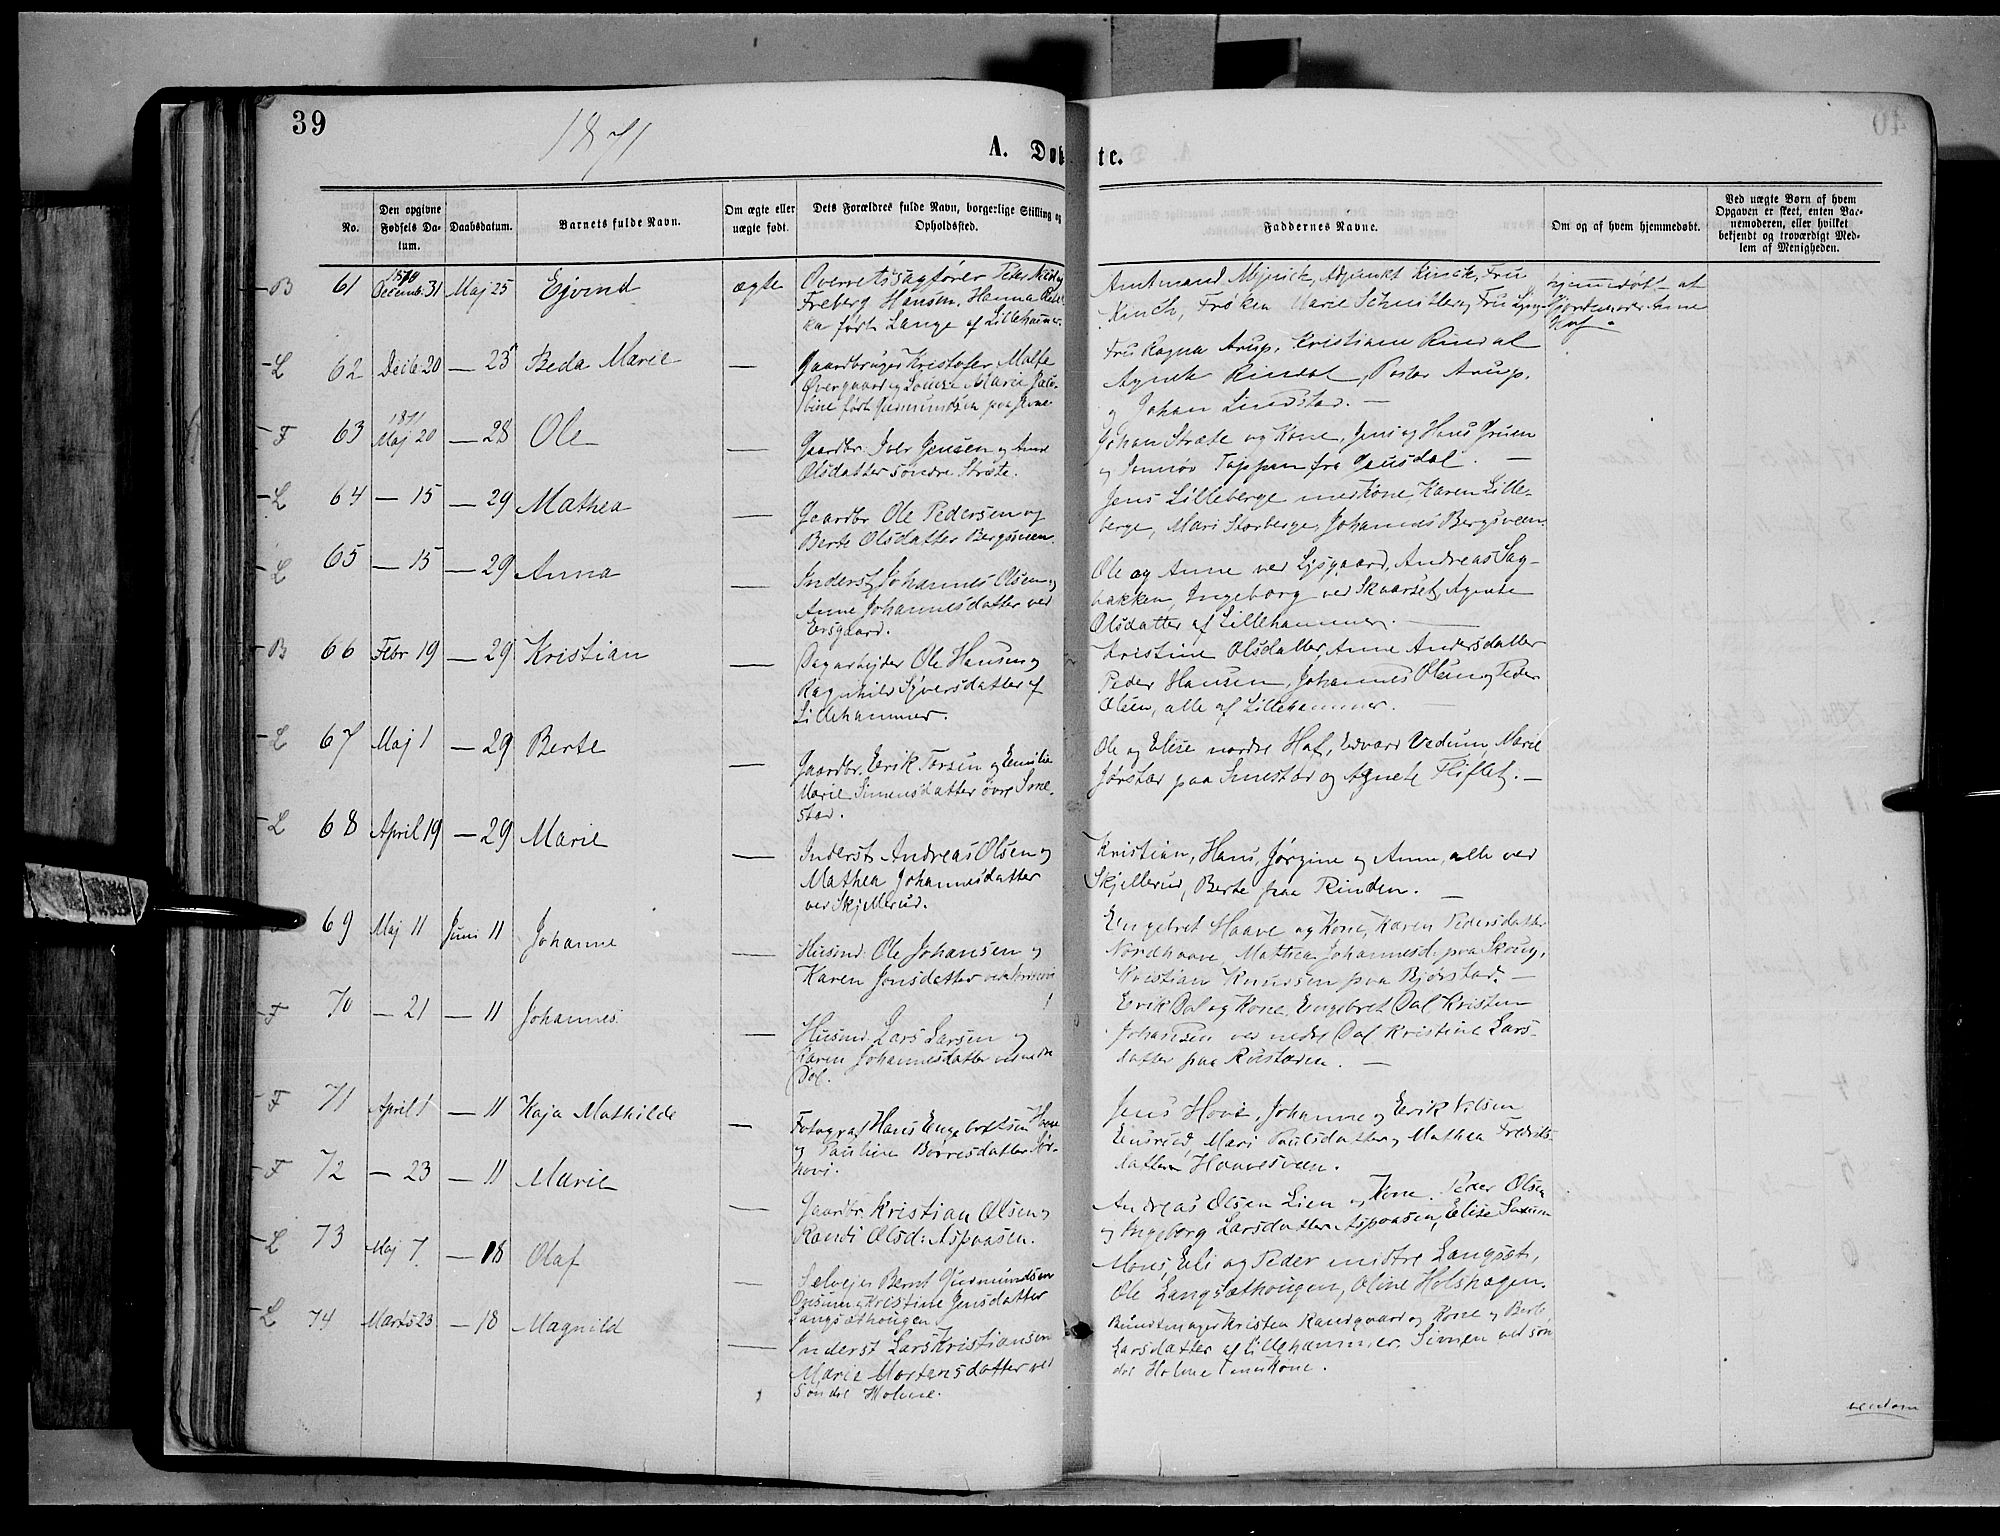 39
1871
A. Døbte.
No.
Den opgivne Fødsels Datum.
Daabsdatum.
Barnets fulde Navn.
Om ægte eller uægte født.
Dets Forældres fulde Navn, borgerlige Stilling og Opholdsted.
Faddernes Navne.
Om og af hvem hjemmedøbt.
Ved uægte Børn af hvem Opgaven er skeet, enten Barnemoderen, eller hvilket bekjendt og troværdigt Medlem af Menigheden.
B 61 1870 Decemb. 31 Maj 25 Ejvind ægte
Overretssagfører Peter
Freberg Hansen, Hanna
ka født Lange af Lillehammer.
Amtmand Mejnich, Adjunkt Kinck, Fru
Kinck, Frøken Marie Schnitler og Fru
hjemmedøbt af
Gjordemoder Anne
Hof
L 62 Decb 20 — 25 Beda Marie —
Gaardbruger Kristofer
Overgaard og Louise Marie Jaco-
bine født Gudmundsen paa
Fru Ragna Arup, Kristiane Rindal
Agnete Rindal, Pastor Arup,
og Johan Lindstad. —
F 63 1871 Maj 20 — 28 Ole —
Gaardbr. Iver Jensen og Anne
Olsdatter søndre Stræte.
Johan Stræte og Kone, Jens og Hans Gruen
og Tappen fra Gausdal. —
L 64 — 15 — 29 Mathea —
Gaardbr Ole Pedersen og
Berte Olsdatter Bergsveen.
Jens Lilleberge med Kone Karen Lille-
berge, Mari Storberge, Johannes Bergsveen.
L 65 — 15 — 29 Anna —
Inderst Johannes Olsen og
Anne Johannesdatter ved
Eersgaard.
Ole og Anne ved Lysgaard, Andreas Sag-
bakken, Ingeborg ved Skaarset, Agnete
Olsdatter af Lillehammer. —
B 66 Febr 19 — 29 Kristian —
Dagarbejder Ole Hansen og
Ragnhild Syversdatter af
Lillehammer.
Kristine Olsdatter, Anne Andersdatter
Peder Hansen, Johannes Olsen og Peder
Olsen, alle af Lillehammer. —
L 67 Maj 1 — 29 Berte —
Gaardbr. Eerik Torsen og Emilie
Marie Simensdatter øvre Sme-
stad.
Ole og Elise nordre Hof, Edvard Vedum, Marie
Jørstad paa Smestad og Agnete Fliflet. —
L 68 April 19 — 29 Marie —
Inderst Andreas Olsen og
Mathea Johannesdatter
ved Skjellerud.
Kristian, Hans, Jørgine og Anne, alle ved
Skjellerud, Berte paa Rinden. —
69 Maj 11 Juni 11 Johanne —
Husmd. Ole Johansen og
Karen Jonsdatter
Engebret Haave og Kone, Karen Pedersdatter
Nordhaave, Mathea Johannesd. paa Skoug,
Kristian Knudsen paa Bjørstad. —
F 70 — 21 — 11 Johannes —
Husmd Lars Larsen og
Karen Johannesdatter nedre
Dal.
Eerik Dal og Kone, Engebret Dal, Kristen
Johansen ved nedre Dal Kristine Lars-
datter paa Rustaden. —
F 71 April 1 — 11 Kaja Mathilde —
Fotograf Hans Engebretsen
og Pauline Børresdatter Jør-
hovi.
Jens Hovi, Johanne og Eerik Nilsen
Eensrud, Mari Paulsdatter og Mathea Fredriks-
datter Haavesveen.
F 72 — 23 — 11 Marie —
Gaardbr. Kristian Olsen og
Randi Olsd. Aspaasen.
Andreas Olsen Lien og Kone. Peder Olsen
og Ingeborg Larsdatter Aspaasen, Elise
L 73 Maj 7 — 18 Olaf —
Selvejer Bernt Gudmundsen
og Kristine Jensdatter
Langsæthougen
Mons, Eli og Peder midtre Langset,
Ole Langsæthougen, Oline Holshagen.
L 74 Marts 23 — 18 Magnild —
Inderst Lars Kristiansen
Marie Mortensdatter ved
Søndre Holme.
Bundtmager Kristen Randgaard og Kone og Berte
Larsdatter af Lillehammer. Simen ved søn-
dre Holme med Kone.